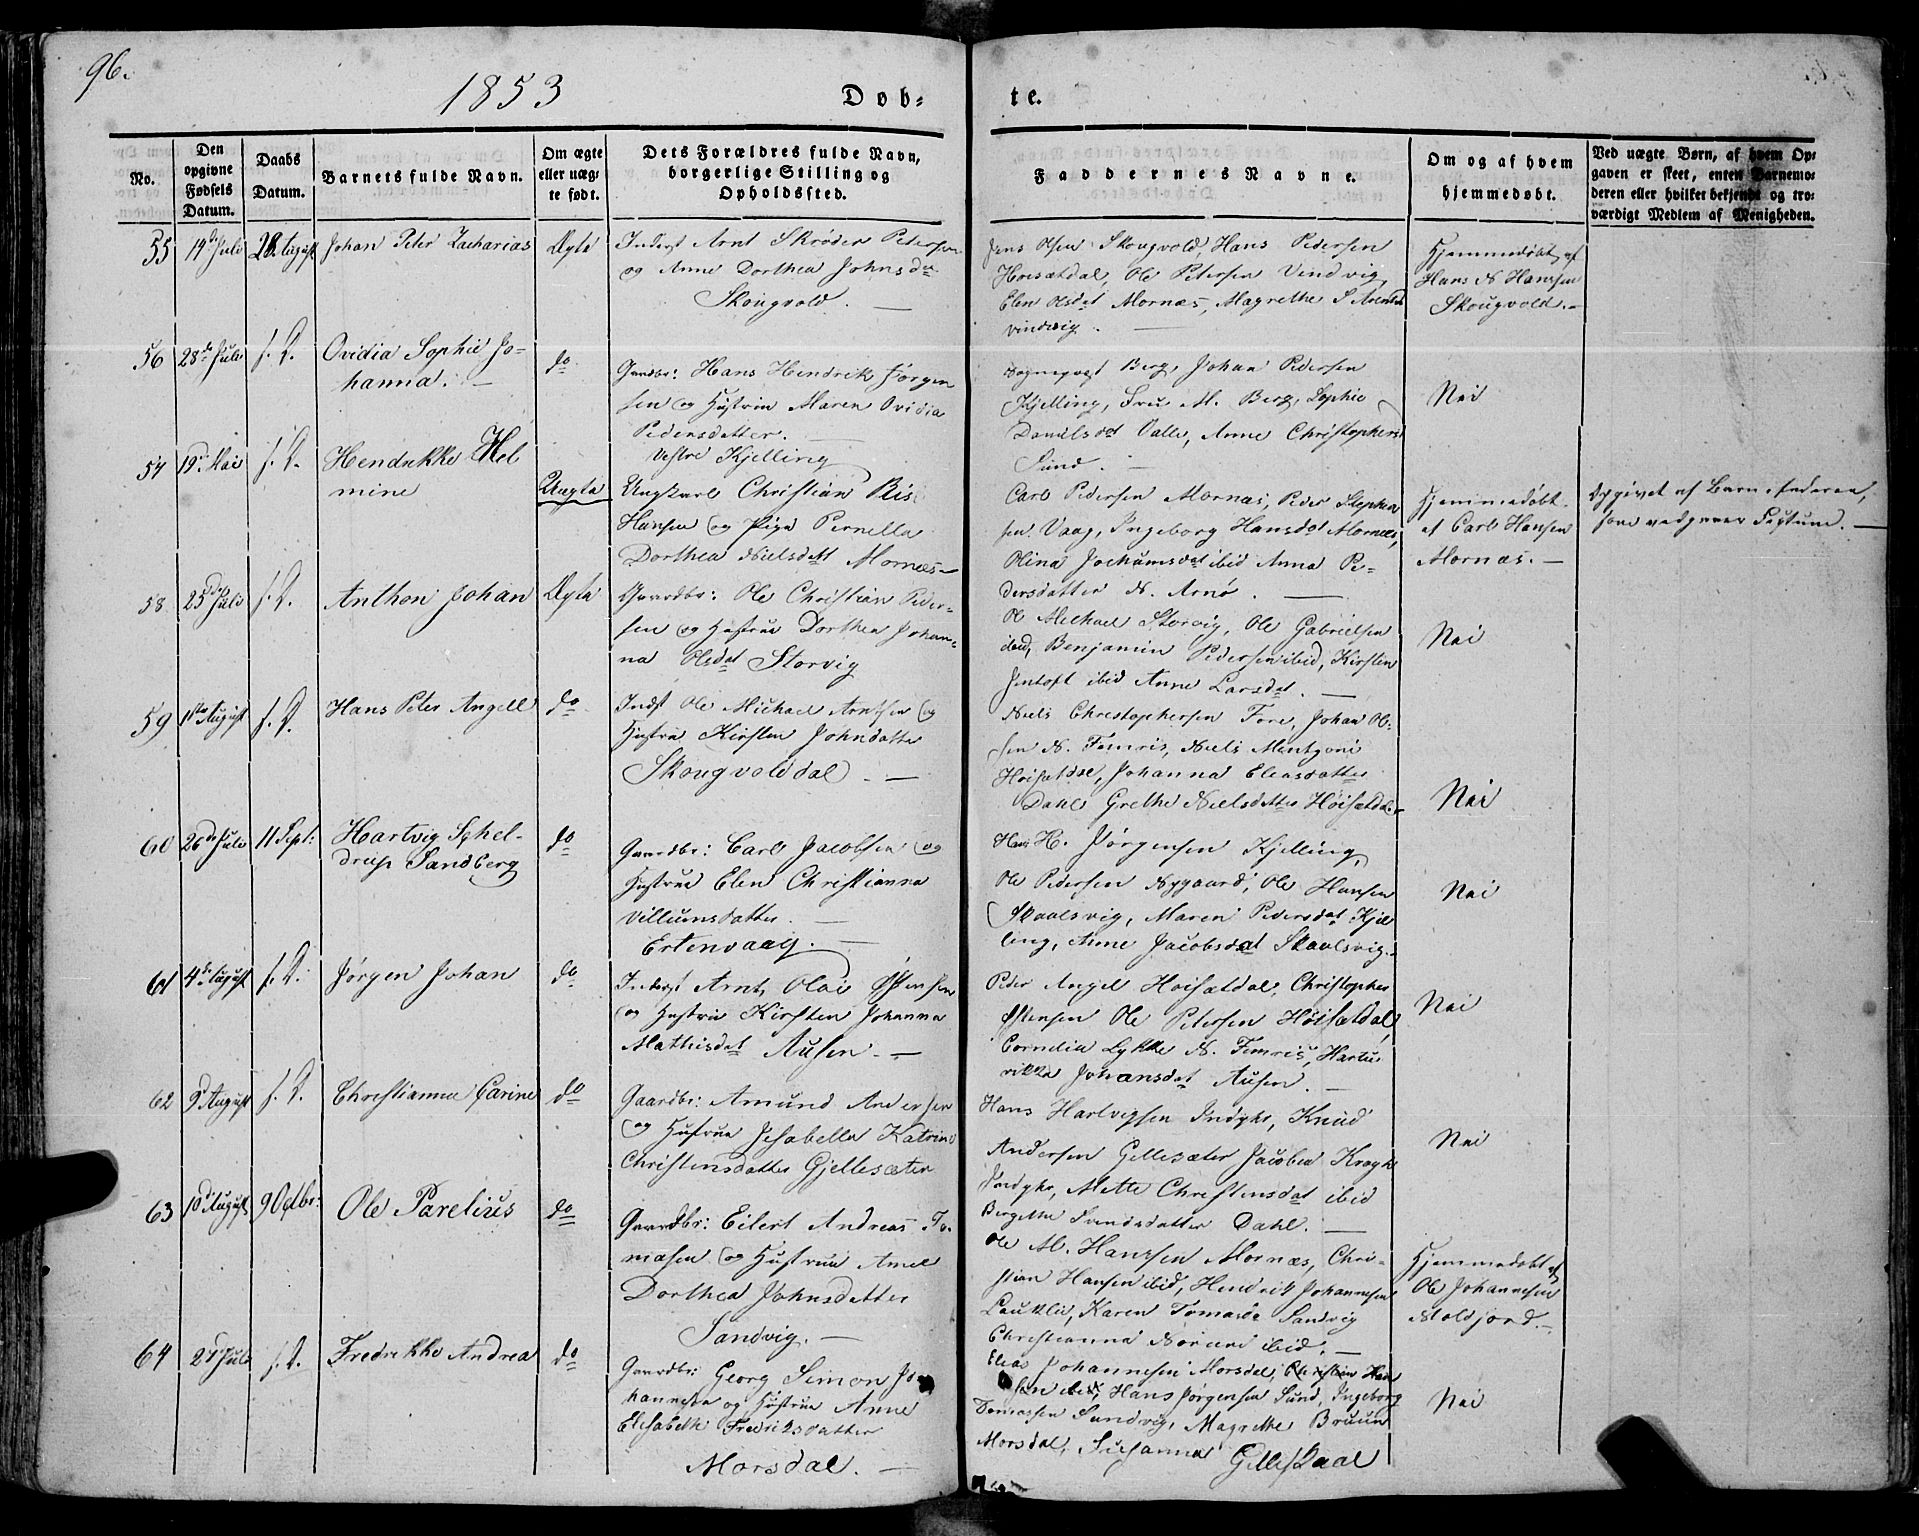 96.
1853
Dob=
te.
No.
Den opgivne Fødsels Datum.
Daabs Datum.
Barnets fulde Navn.
Om ægte eller uæg= te født.
Dets Forældres fulde Navn, borgerlige Stilling og Opholdssted.
Faddernes Navne.
Om og af hvem hjemmedøbt.
Ved uægte Børn, af hvem Op=
gaven er skeet, enten Barnemo=
deren eller hvilket bekjendt og tro=
værdigt Medlem af Menigheden.
55 19de Juli 28 August Johan Peter Zacharias Ægte
Inderst Arnt Skrøder Petersen
og Anne Dorthea Johnsdtr
Skougvold. —
Jens Olsen Skougvold, Hans Pedersen
Hoisætdal, Ole Petersen Vindvig,
Elen Olsdat Mornæs, Magrethe S Arentsd
vindvig. —
Hjemmedøbt af
Hans N Hansen
Skougvold. —
56 28de Juli s. D. Ovidia Sophie Jo-
hanna. — do
Gaardbr: Hans Hendrik Jørgen
sen og Hustru Maren Ovidia
Pedersdatter. —
Vestre Kjelling
Berg, Johan Pedersen
Kjelling, Fru M. Berg, Sophie
Danielsdat Valle, Anne Christophersd
Sund. —
Nei
57 19de Mai s. D. Hendrikke Hel
mine Uægte
Ungkarl Christian Riis
Hansen og Pige Pernella
Dorthea Nielsdatt Mornæs —
Carl Pedersen Mornæs, Peder Stephen
sen Vaag, Ingeborg Hansdat Mornæs,
Olina Jochumsdat ibid Anna Pe-
dersdatter N. Arnø. —
Hjemmedøbt
af Carl Hansen
Mornæs. —
Opgivet af Barnefaderen,
som vedgaaer Factum. —
58. 25de Juli s. D. Anthon Johan Ægte
Gaardbr: Ole Christian Peder-
sen og Hustru Dorthea Johan-
na Olsdat Storvig
Ole Michael Storvig, Ole Gabrielsen
ibid, Benjamin Pedersen ibid, Kirsten
Jentoft ibid Anne Larsdat. —
Nei
59 1ste August s. D. Hans Peter Angell do
Indst Ole Michael Arntsen og
Hustru Kirsten Johnsdatter
Skougvolddal. —
Niels Christophersen Fore, Johan Ol-
sen N. Femris, Niels Mentzoni
Hoisætdal, Johanna Eleasdatter
Dahl Grethe Nielsdatter Høisætdal. —
Nei
60 26de Juli 11 Sept: Hartvig Schel-
drup Sandberg do
Gaardbr: Carl Jacobsen og
Hustrue Elen Christianna
Villiumsdatter. —
Ertenvaag. —
Hans H. Jørgensen Kjelling,
Ole Pedersen Nygaard, Ole Hansen
Skaalsvig, Maren Pedersdat Kjel
ling, Anne Jacobsdat Skaalsvig. —
Nei
61 4de August s. D: Jørgen Johan do
Inderst Arnt Olai Østensen
og Hustru Kirsten Johanna
Mathisdat Ausen. —
Peder Angel Hoisætdal, Christopher
Østensen Ole Petersen Høisætdal
Cornelia Lykke N. Femris, Hartvi
rikke Johansdat Ausen. —
Nei
62 9d August s. D. Christianna Carine do
Gaardbr: Amund Andersen
og Hustrue Jesabella Katrine
Christensdatter Gjellesæter
Hans Hartvigsen Indyhr, Knud
Andersen Gellesæter Jacobea Kragh
Indyhr, Mette Christensdat ibid
Bergethe Svendsdatter Dahl. —
Nei
63 10d August 9 Octbr: Ole Parelius do
Gaardbr: Eilert Andreas To-
masen og Hustrue Anne
Dorthea Johnsdatter
Sandvig. —
Ole M. Hanssen Mornæs, Chri-
stian Hansen ibid, Hendrik Johannesen
Laukli, Karen Tomasda Sandvig
Christianna ibid. —
Hjemmedøbt af
Ole Johannesen
Moldjord. —
64 27de Juli s. D. Fredrikke Andrea do
Gaardbr: Georg Simon Jo
hannesen og Hustrue Anne
Elisabeth Fredriksdatter
Morsdal. —
Elias Johannesen Morsdal, Christen Han
sen ibid, Hans Jørgensen Sund, Ingeborg
Tomassen Sandvig, Magrethe Bruun
Morsdal, Susanna Gilles
Nei